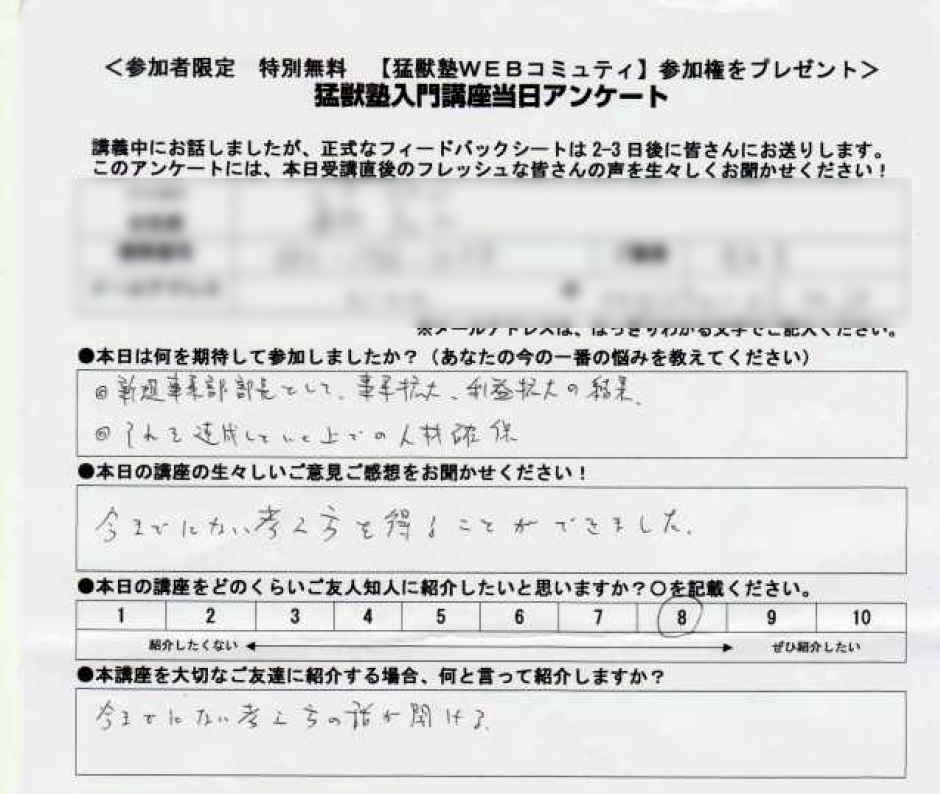 ＜参加者限定　特別無料　【猛獣塾ＷＥＢコミュティ】参加権をプレゼント＞
猛獣塾入門講座当日アンケート
講義中にお話しましたが、正式なフィードバックシートは 2-3 日後に皆さんにお送りします。
このアンケートには、本日受講直後のフレッシュな皆さんの声を生々しくお聞かせください！
※メールアドレスは、はっきりわかる文字でご記入ください。
●本日は何を期待して参加しましたか？（あなたの今の一番の悩みを教えてください）
◎新規事業部部長として、事業拡大、利益拡大の結果、
◎それを達成していく上での人材確保
●本日の講座の生々しいご意見ご感想をお聞かせください！
今までにない考え方を得ることができました。
●本日の講座をどのくらいご友人知人に紹介したいと思いますか？〇を記載ください。
1 2 3 4 5 6 7 8 9 10
紹介したくない ぜひ紹介したい
●本講座を大切なご友達に紹介する場合、何と言って紹介しますか？
今までにない考え方の話が聞ける。